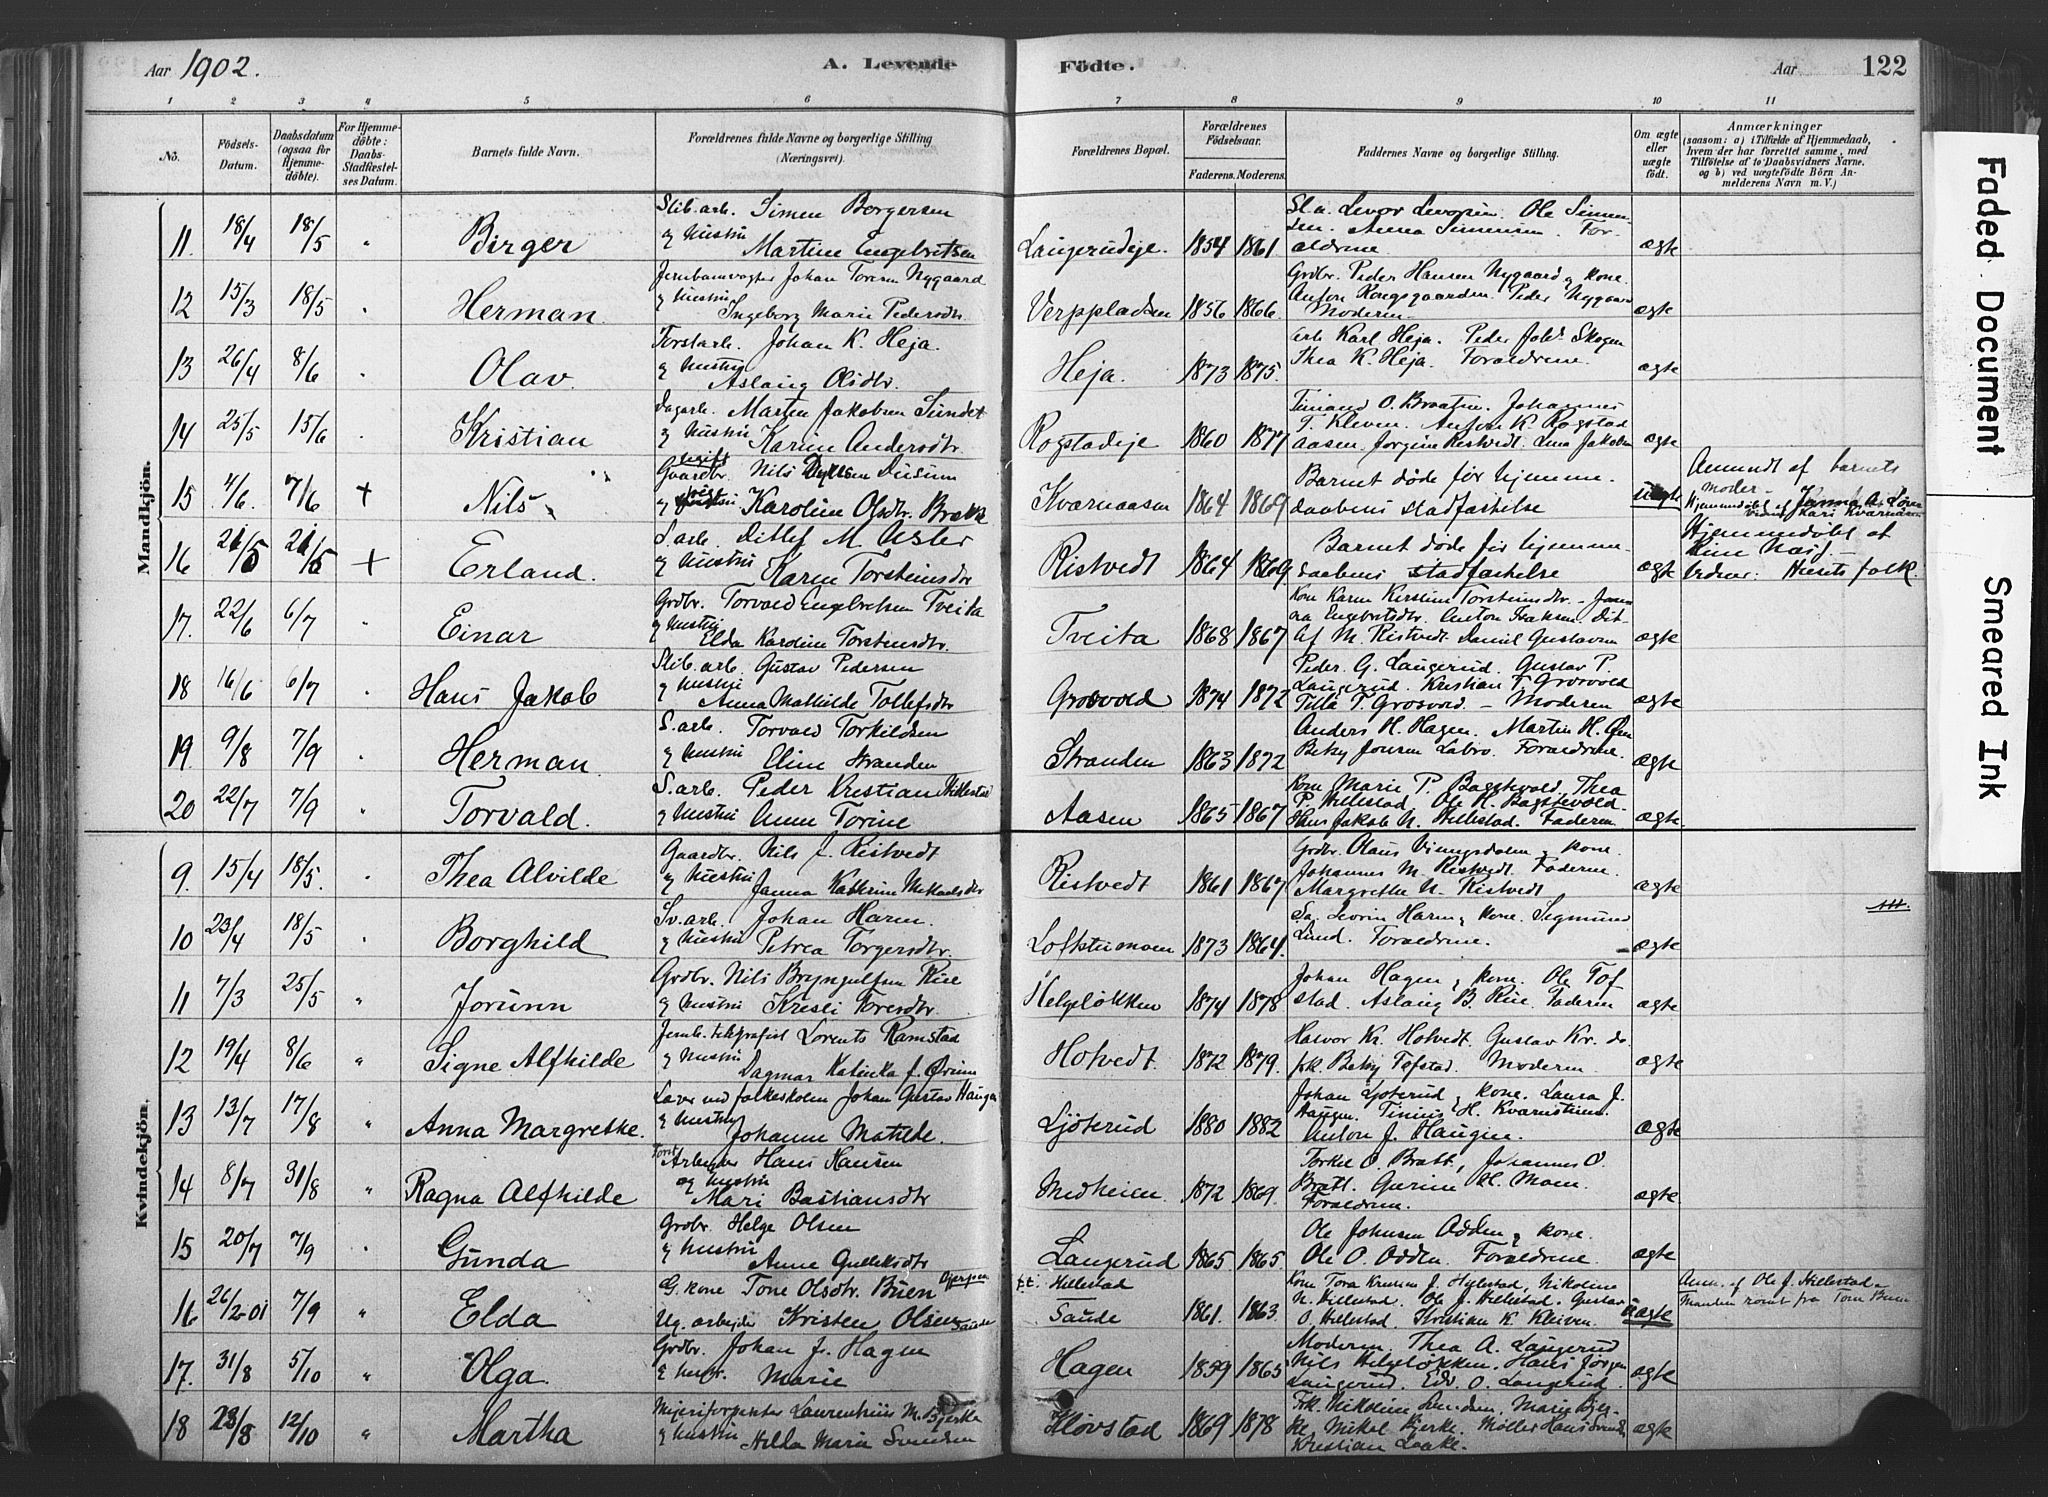 Aar 1902. A. Levende Födte. Aar 122
1 2 3 4 5 6 7 8 9 10 11
No. Födsels-Datum. Daabsdatum (ogsaa for Hjemme-döbte). For Hjemme-döbte: Daabs-Stadfæstel-ses Datum. Barnets fulde Navn. Forældrenes fulde Navne og borgerlige Stilling (Næringsvei). Forældrenes Bopæl. Forældrenes Födselsaar. Faderens. Moderens. Faddernes Navne og borgerlige Stilling. Om ægte eller uægte födt. Anmærkninger (saasom: a) i Tilfælde af Hjemmedaab, hvem der har forrettet samme, med Tilföielse af to Daabsvidners Navne, og b) ved uægtefödte Börn An-melderens Navn m. V.)
Mandkjön.
11 18/4 18/5 " Birger Slib.arb. Simen Borgersen
og hustru Martine Engebretsen Langerudeje. 1854 1861 Ole Simen-sen. Anna Simensen. For-ældrene ægte
12 15/3 18/5 " Herman Jernbanevogter Johan Toresen Nygaard
og hustru Ingeborg Marie Pedersdtr. Verppladsen 1856 1866 Grdbr. Peder Hansen Nygaard og kone.
Anton Kongsgaarden. Peder Nygaard Moderen ægte
13 26/4 8/6 " Olav Forstarb. Johan K. Heja.
og hustru Aslaug Olsdtr. Heja. 1873 1875. arb Karl Heja. Peder Joh. Skogen
Thea K. Heja. Forældrene. ægte
14 25/5 15/6 " Kristian Dagarb. Marten Jakobsen Sundet
og hustru Karen Andersdtr. Rogstadeje 1860 1877 O. Braaten. Johannes
T. Kleven. Anton K. Rogstad
aasen. Jorgine Ristvedt. Lina Jakobsen ægte
15 4/6. 7/6 + Nils Gaardbr. Nils
Karoline Olsdtr. Kvarnaasen 1864 1869 Barnet döde för hjemme-
daabens stadfæstelse uægte Anmeldt af barnets
moder -
Hjemmedöbt af
16 21/5 21/5 + Erland. S.arb. Ditlef M.
og hustru Karen Torsteinsdtr Ristvedt 1864 1869 Barnet döde för hjemme-
daabens stadfæstelse ægte Hjemmedöbt af
Vidner: Husets folk.
17. 22/6 6/7 " Einar Grdbr. Torvald Engebretsen Tveita
og hustru Elda Karoline Torsteinsdtr. Tveita 1868 1867 Kone Karen Kirstine Torsteinsdtr.
Engebretsdtr. Anton Isaksen. Dit-
lef M. Ristvedt. Daniel Gustavsen ægte
18 16/6 6/7 " Hans Jakob Slib.arb. Gustav Pedersen
og hustru Anna Mathilde Tollefsdtr Grosvold 1874 1872 Peder G. Langerud. Gustav P.
Langerud. Kristian T. Grosvold
Tilla T. Grosvold. - Moderen ægte
19 9/8 7/9 " Herman S.arb. Torvald Torkildsen
og hustru Eline Stranden Stranden 1863 1872 Anders H. Hagen. Martin H.
Betsy Jonsen Labro. Forældrene. ægte
20 22/7 7/9 " Torvald. S.arb. Peder Kristian Hillestad
og hustru Anne Torine Aasen 1865 1867 Kone Marie P. Bagstevold, Thea
P. Hillestad, Ole H. Bagstevold.
Hans Jakob N. Hillestad. Faderen ægte.
Kvindekjön.
9. 15/4 18/5. " Thea Alvilde Gaardbr. Nils J. Ristvedt
og hustru Janna Kathrine Mikaelsdtr Ristvedt 1861 1867 Grdbr. Olaus Vinugsdalen og kone.
Johannes M. Ristvedt. Faderen.
Margrethe N. Ristvedt ægte
10 23/4 18/5 " Borghild Sv.arb. Johan Haren.
og hustru Petrea Torgersdtr. 1873 1864. Haren og kone. Sigmund
Lund. Forældrene. ægte
11 7/3 25/5 " Jorunn Grdbr. Nils Bryngulfsen
og hustru Kresti Toresdtr. Helgelökken 1874 1878 Johan Hagen og kone. Ole Tof
stad. Aslaug B. Faderen ægte
12 19/4 8/6 " Signe Alfhilde Jernb. telegrafist Lorents Ramstad
og hustru Dagmar Katinka Hotvedt 1872 1879. Halvor Kr. Hotvedt. Gustav Kr. do.
frk. Betsy Tofstad. Moderen ægte
13 13/7 17/8 " Anna Margrethe. Lærer ved folkeskolen Johan Gustav Haugen
og hustru Johanne Matilde. Ljöterud 1880 1882 Johan Ljöterud og kone. Laura J.
Haugen. Tinius H. Kvarnstuen.
Anton J. Haugen. ægte
14 8/7 31/8 " Ragna Alfhilde Forst Arbejder Hans Hansen
og hustru Mari Bastiansdtr Medheien 1872 1869. Torkel O. Bratt, Johannes O.
Bratt. Gurine H. Moen.
Forældrene. ægte
15 20/7 7/9 " Gunda Grdbr. Helge Olsen
og hustru Anne Gulleksdtr Langerud 1865 1865 Ole Johnsen Odden og kone.
Ole O. Odden. Forældrene ægte
16 26/2-01 7/9 " Elda G. kone Tone Olsdtr. Buen
Ug. arbejder Kristen Olsen Saude p.t. Hillestad
Saude 1861. 1863.
N. Hillestad. Ole J. Hillestad. Gustav
O. Hillestad. Kristian K. Kleiven. uægte Anm. af Ole J. Hillestad -
Manden römt fra Tone Buen
17. 31/8 5/10 " Olga. Grdbr. Johan Js. Hagen
og hustr. Marie Hagen 1859 1865 Moderen. Thea A. Langerud
Nils Helgelökken. Hans Jörgen
Langerud. Edv. O. Langerud. ægte
18 23/8 12/10 " Martha Mejeriforpagter Laurenthius M. Bjerke
og hustru Hilda Marie Svendsen Klövstad 1869 1878 Frk. Nikoline Marie Bjer-
ke. Mikal Bjerke. Möller Hans Svendsen
Kristian Laake. ægte
Faded Document
Smeared Ink